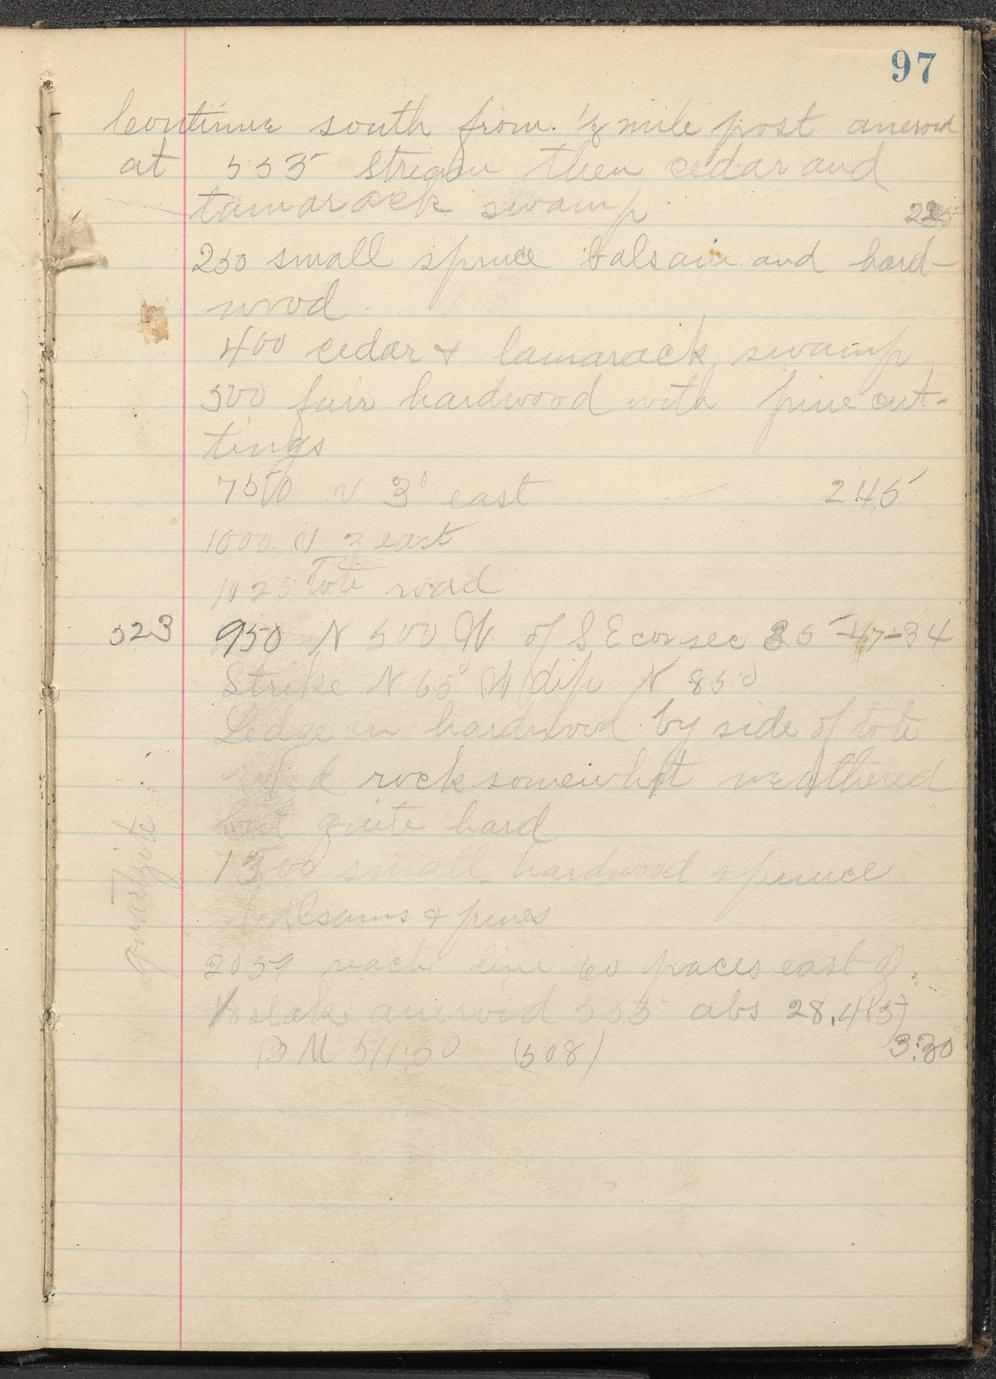 97
Continue south from 1/8 mile post aneroid
at 535 Stream then cedar and
tamarack swamp 225
250 small spruce balsam and hard-
wood
400 cedar & tamarack swamp
500 fair hardwood with pine cut-
tings
750 v 3° east 245
1000 v 3 east
1025 Tote road
523 950 N 500 W of S E cor sec 35-47-34
Strike N 65° W dip N 85°
Ledge in hardwood by side of tote
road rock somewhat weathered
but quite hard
quartzite
1300 small hardwood spruce
balsams & pines
2059 reach line 60 paces east of
1/8 stake aneroid 535 abs 28.4(5)
B M 511.50 (508) 3:30